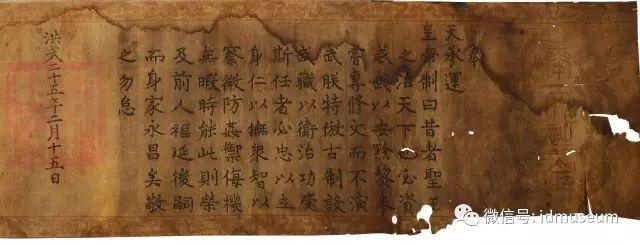 奉
天承運
皇帝制曰昔者聖王
之治天下也必資
威武以安黔黎未
嘗專修文而不演
武朕特倣古制設
武職以衛治功受
斯任者必忠以立
身仁以撫衆智以
察微防姦禦侮機
無暇時能此則榮
及前人福延後嗣
而身家永昌矣敬
之勿怠
洪武二十五年二月十五日
微信号: idmuseum